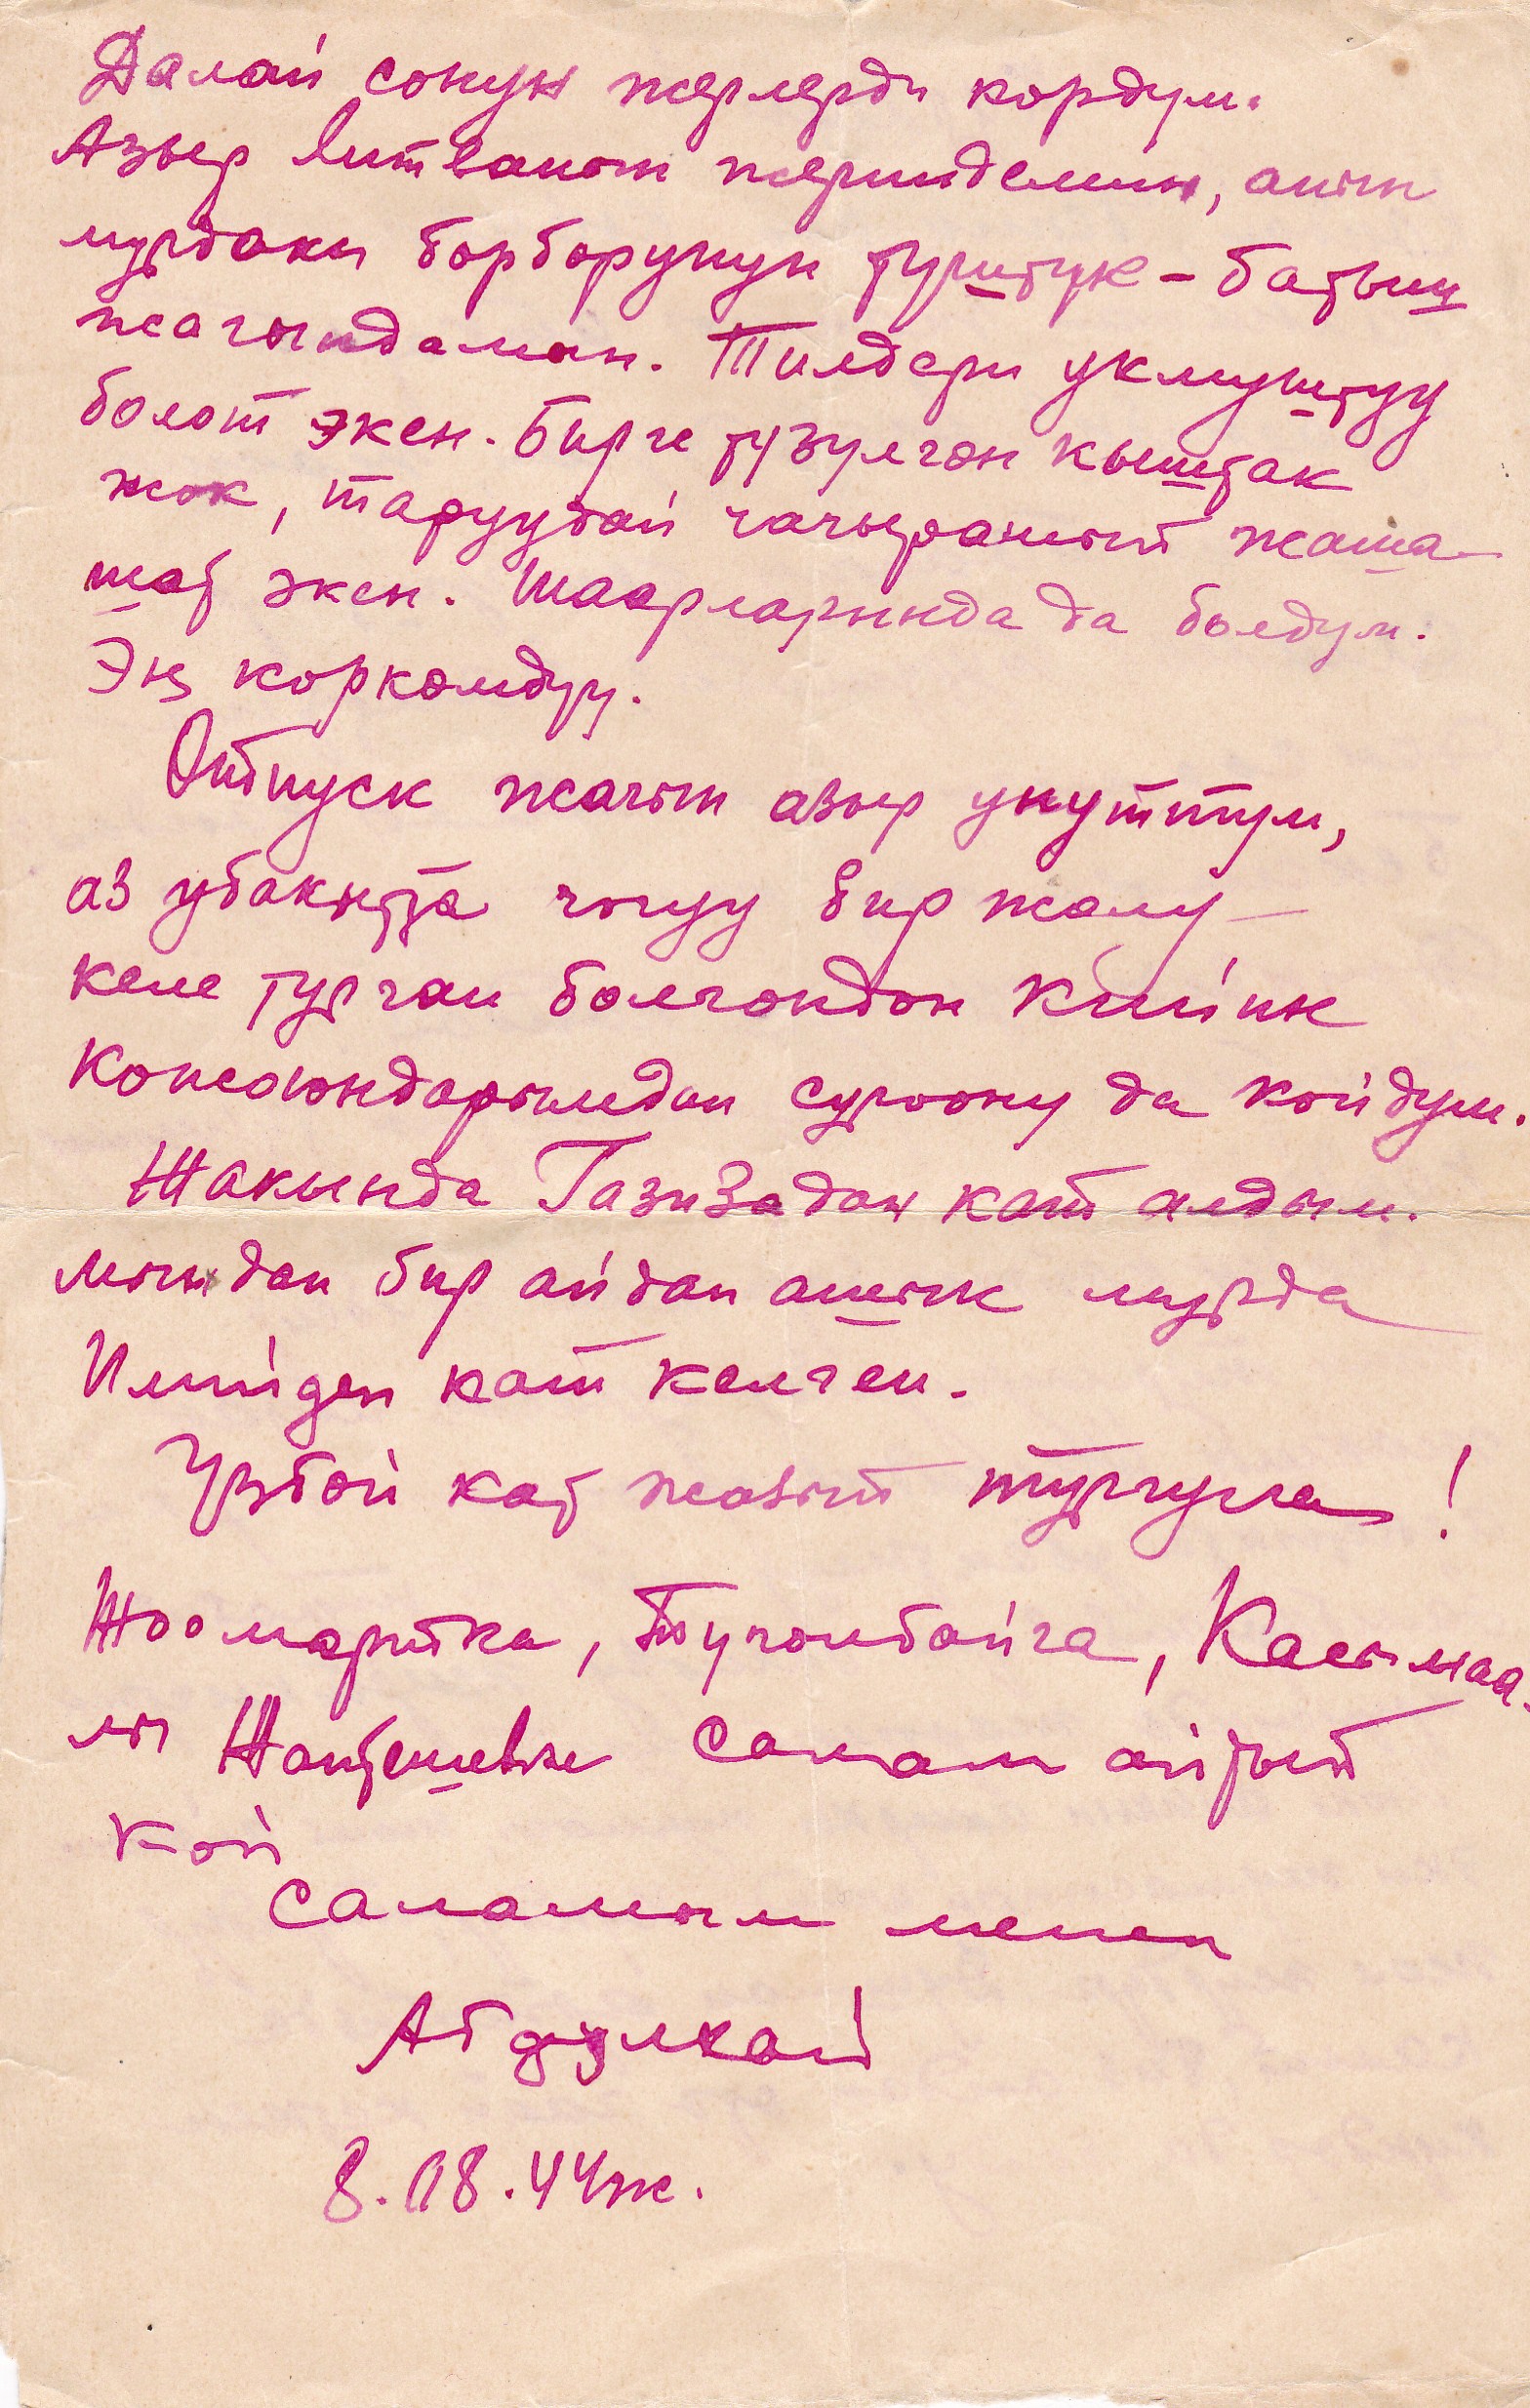 Далай сонун жерлерди кордум.
Азыр Литванын жериндемин, анын
мурдакы борборунун түштүк-батыш
жагындамын. Тилдери укмуштуу
болот экен. Бирге түзүлгөн кыштак
жок, таруудай чачыранып жаша-
шат экен. Шаарларында да болдум.
Эң коркомдуу.
Отпуск жагын азыр унуттум,
аз убакытта чыгуу бир жолу
келе турган болгондон кийин
Кожоюндарымдан суроону да койдум.
Жакында Газизадан кат алдым.
Мындан бир айдан ашык мурда
Илийден кат келген.
Үзбой кат жазып тургула!
Жоомартка, Түгөлбайга, Касымаа-
лы Жантөшевге салам айтып
кой
Саламым менен
Абдулкай
8.08.44ж.